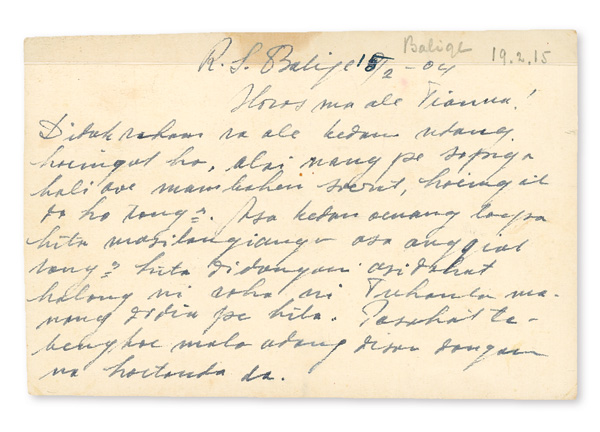 Balige 19.2.15
R. S. Balige 18/2 - 04
Horas ma ale Tianna!
Didok roham na ale kedan ndang
hoingot ho, alai nang pe sopnga
hali ave mambahen soerat, hoingot
do ho tong2. Asa kedan oenang loepa
hita masitangiangan asa anggiat
tong2 hita didongani asi dohot
holong ni roha ni Tuhanta ma-
nang didia pe hita. Pasahat ta-
bengkoe molo adong disan dongan
na hoetanda da.